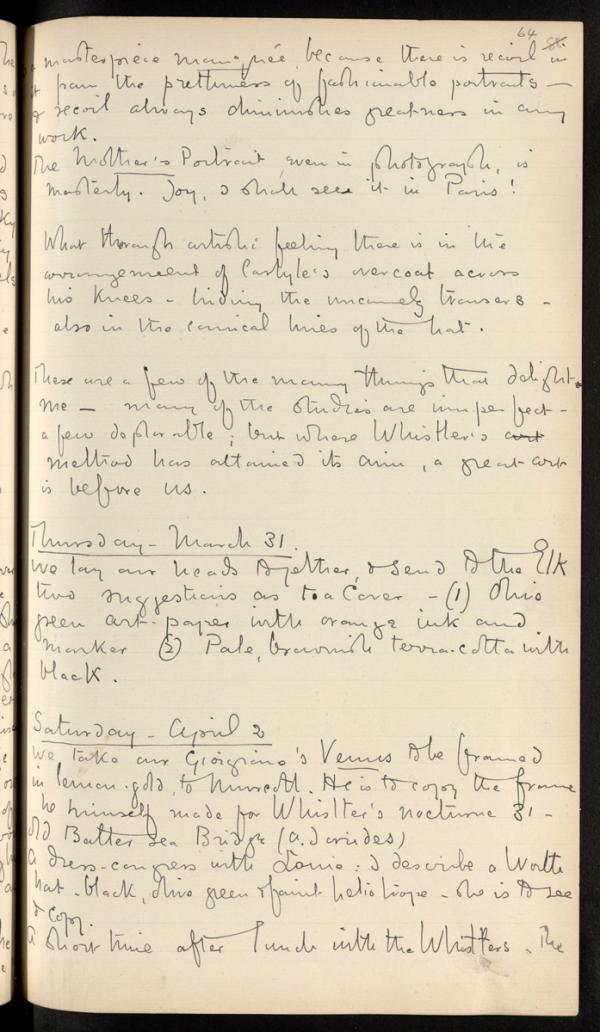 64
a masterpiece manquée, because there is recoil in
it from the prettiness of fashionable portraits —
& recoil always diminishes greatness in any
work.
The Mother's Portrait, even in photograph, is
masterly. Joy, I shall see it in Paris!
What thorough artistic feeling there is in the
arrangement of Carlyle's overcoat across
his knees - hiding the uncomely trousers -
also in the conical lines of the hat.
These are a few of the many things that delight
me — many of the studies are imperfect -
a few deplorable; but where Whistler's art
method has attained its aim, a great art
is before us.
Thursday - March 31.
We lay our heads together, & send to the Elk
two suggestions as to a Cover - (1) Olive
green art-paper with orange ink and
marker (2) Pale, brownish terra-cotta with
black.
Saturday - April 2
We take our Giorgione's Venus to be framed
in lemon-gold, to Murcott. He is to copy the frame
he himself made for Whistler's nocturne 31 -
Old Battersea Bridge (A. Ionides)
A dress-congress with Louie: I describe a Worth
hat - black, olive green & faint heliotrope - she is to see
& copy.
A short time after lunch with the Whistlers. The